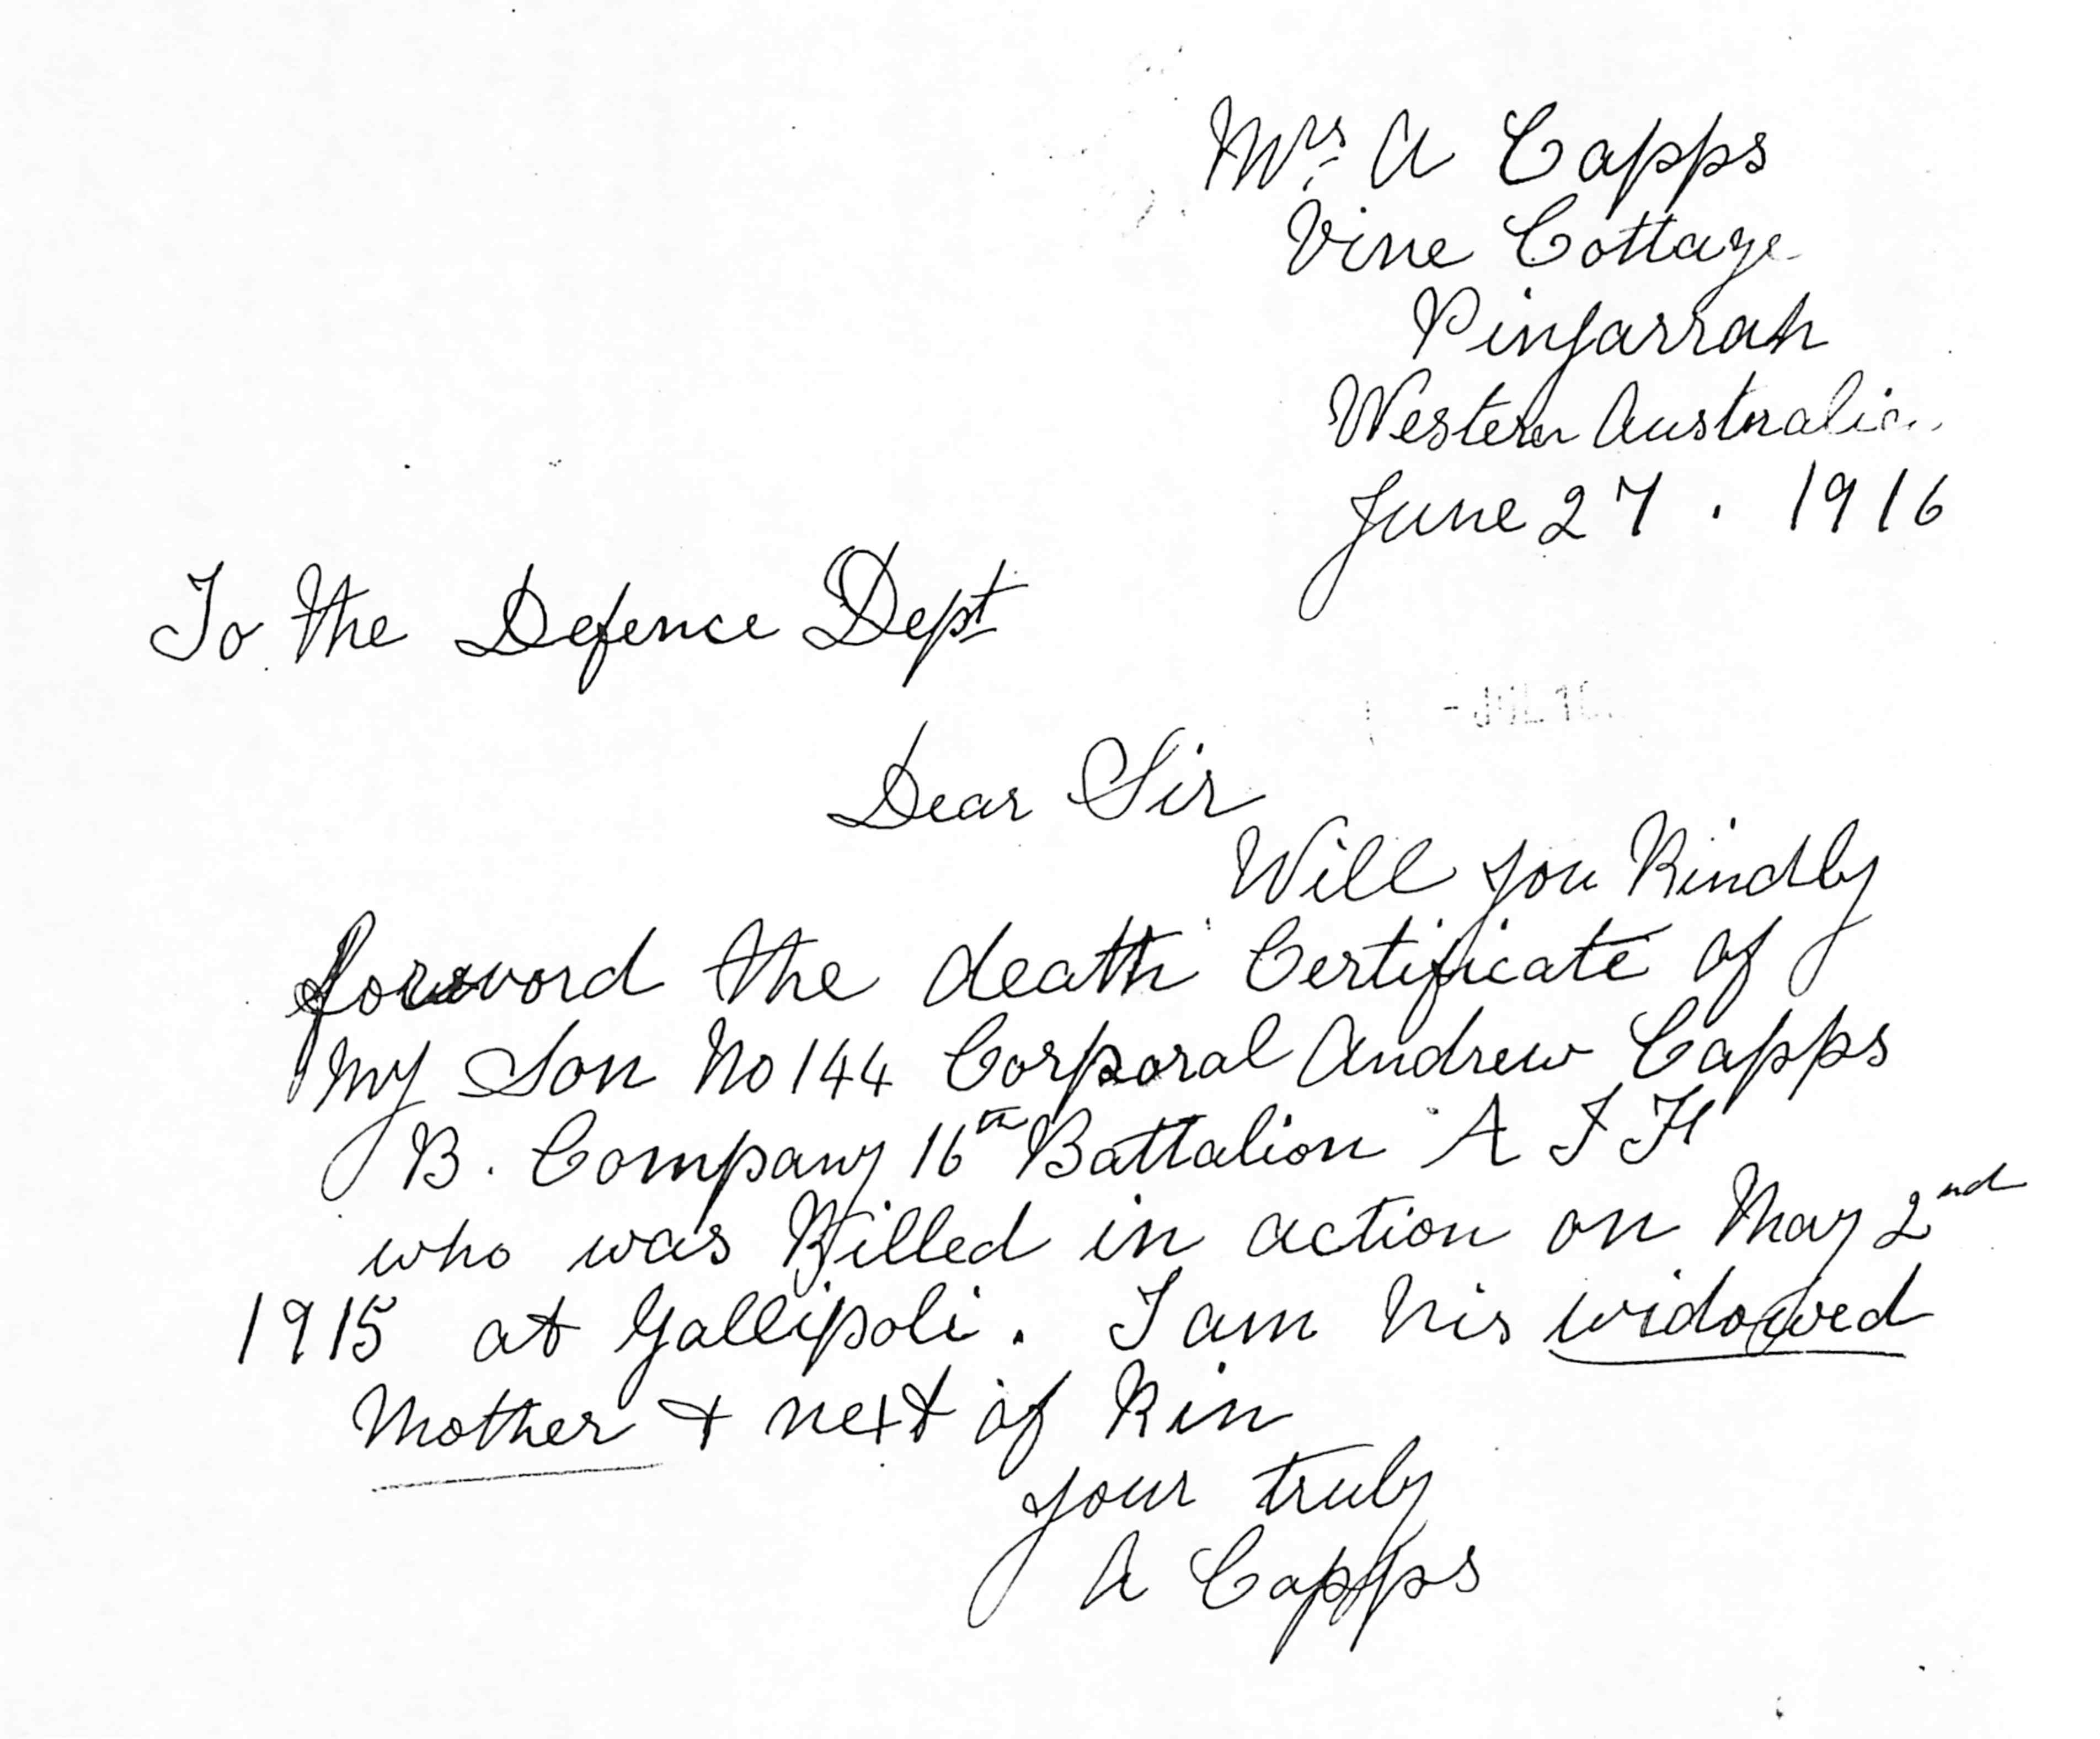 Mrs. A Capps
Vine Cottage
Pinjarrah
Western Australia
June 27 . 1916
To the Defence Dept
Dear Sir
Will you Kindly
forword the death Certificate of
My Son No 144 Corporal Andrew Capps
B. Company 16th Battalion A I F
who was Killed in action on May 2nd
1915 at Gallipoli. I am his widowed
Mother & next of Kin
your truly
A Capps